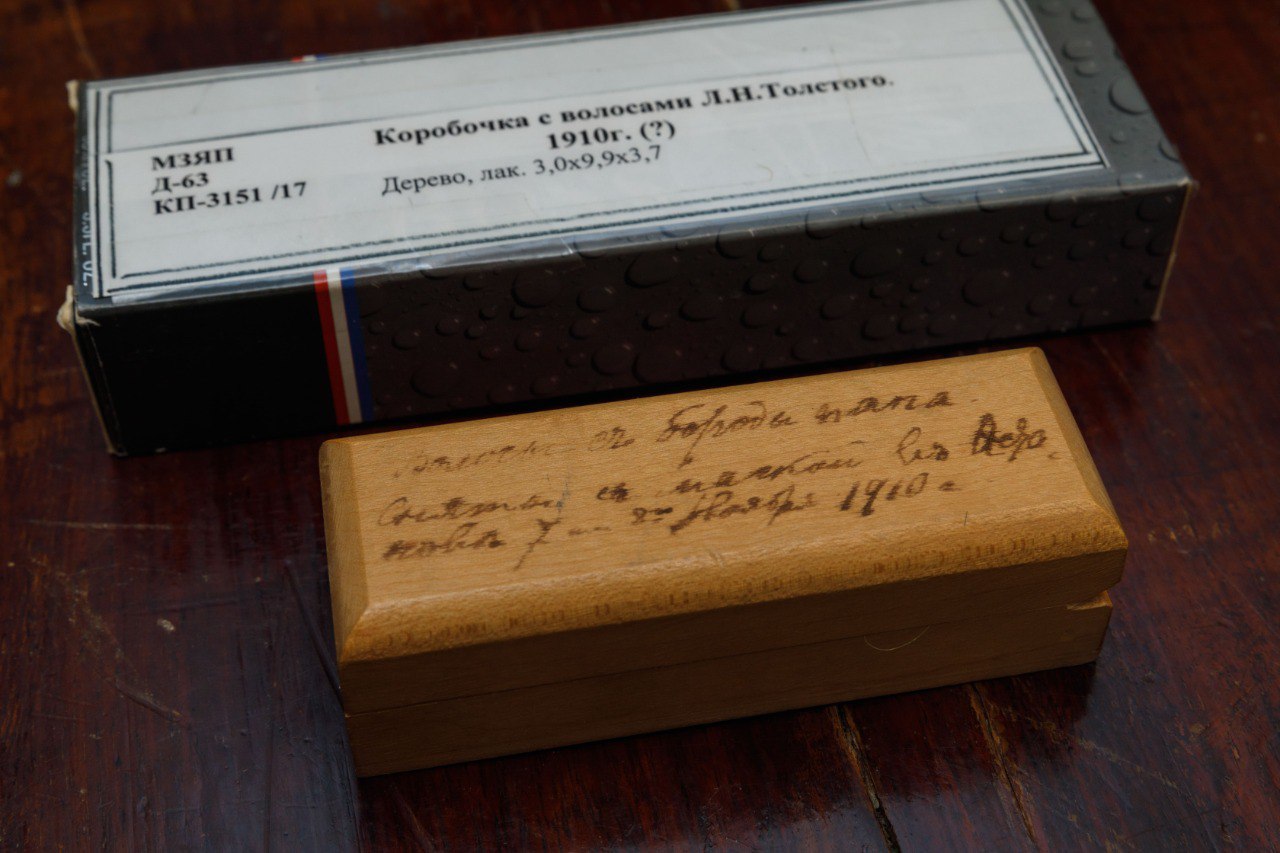 Коробочка с волосами Л.Н.Толстого.
1910г. (?)
МЗЯП
Д-63
КП-3151 /17
Дерево, лак. 3,0х9,9х3,7
съ бороды папа.
съ маской въ Аста-
пова 7 ноября 1910 г.